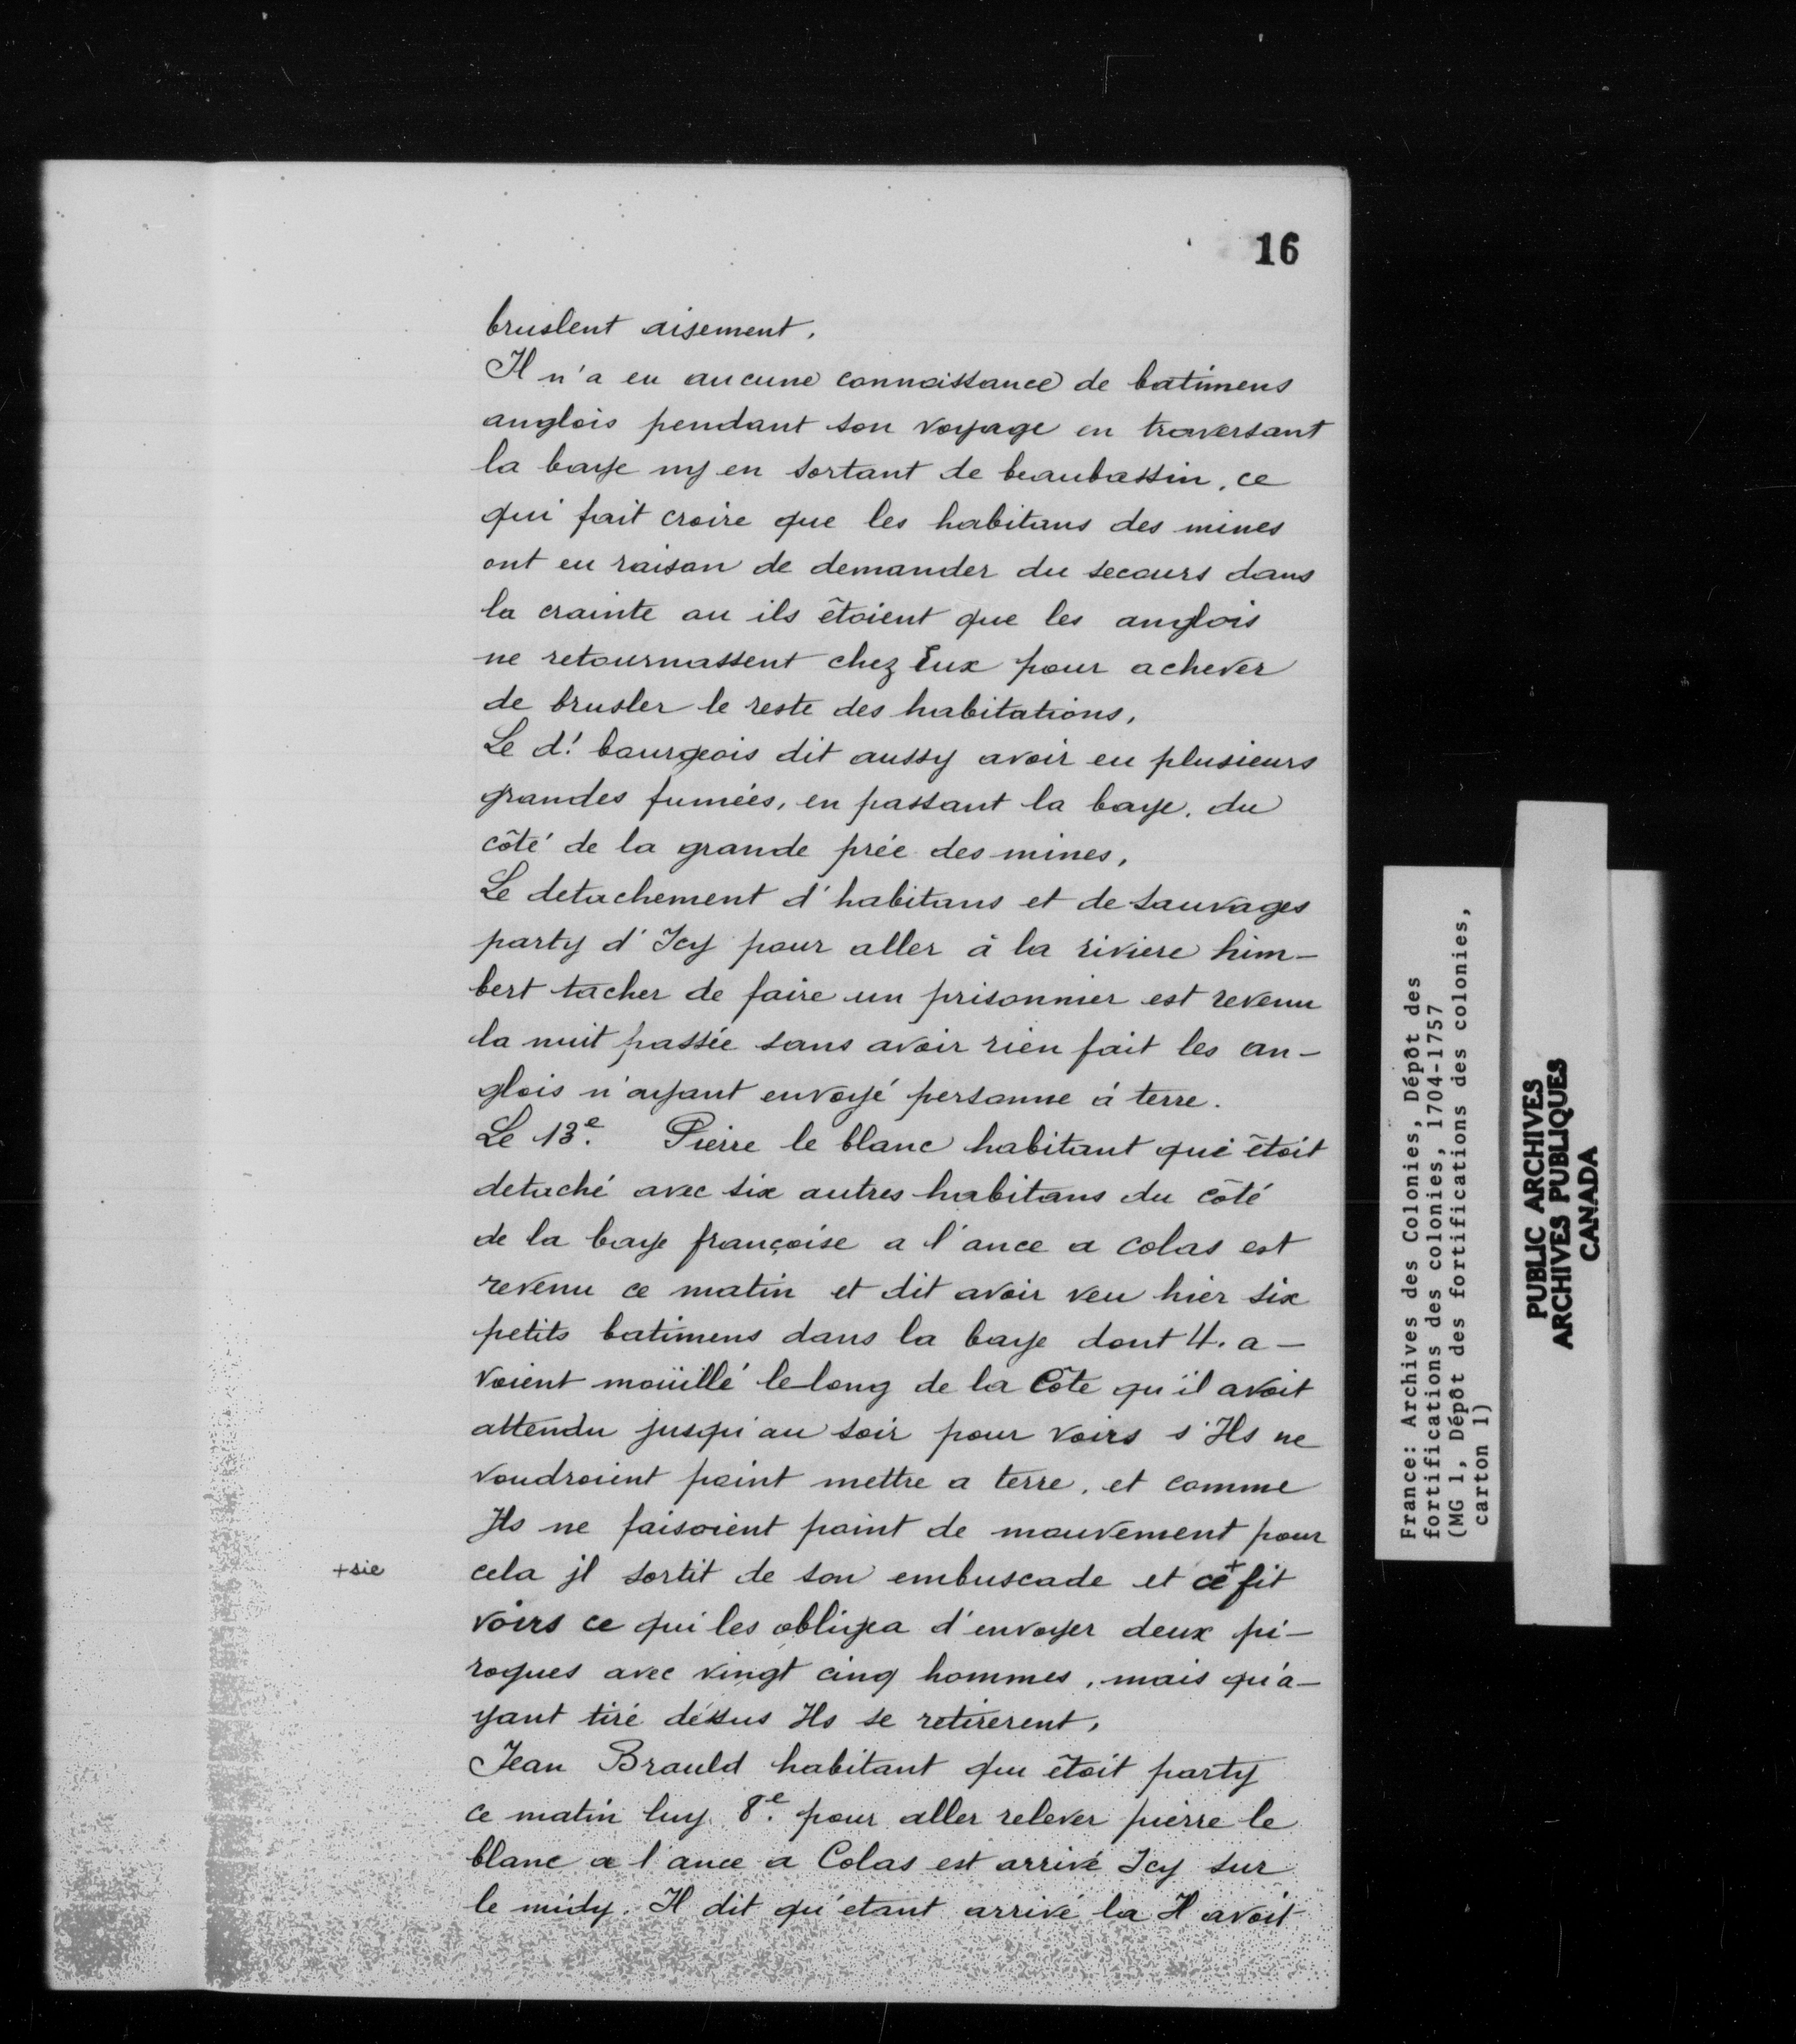 16
bruslent aisement.
Il n'a eu aucune connoissance de batimens
anglois pendant son voyage en traversant
la baye ny en sortant de beaubassin, ce
qui fait croire que les habitans des mines
ont eu raison de demander du secours dans
la crainte ou ils étoient que les anglois
ne retournassent chez Eux pour achever
de brusler le reste des habitations,
Le d.t bourgeois dit aussy avoir eu plusieurs
grandes fumées, en passant la baye, du
côté de la grande prée des mines,
Le detachement d'habitans et de sauvages
party d'Icy pour aller à la riviere him-
bert tacher de faire un prisonnier est revenu
la nuit passée sans avoir rien fait les an-
glois n'ayant envoyé personne à terre.
Le 13e. Pierre le blanc habitant qui étoit
detaché avec six autres habitans du côté
de la baye françoise a l'ance a colas est
revenu ce matin et dit avoir veu hier six
petits batimens dans la baye dont 4. a-
voient moüillé le long de la Côte qu'il avoit
attendu jusqu'au soir pour voirs s'Ils ne
voudroient point mettre a terre, et comme
Ils ne faisoient point de mouvement pour
+sic
cela jl sortit de son embuscade et ce+ fit
voirs ce qui les obligea d'envoyer deux pi-
rogues avec vingt cinq hommes, mais qu'a-
yant tiré dessus Ils se retirerent,
Jean Brauld habitant qui étoit party
ce matin luy 8e. pour aller relever pierre le
blanc a l'ance a Colas est arrivé Icy sur
le midy. Il dit qu'etant arrivé la Il avoit
France: Archives des Colonies, Dépôt des
fortifications des colonies, 1704-1757
(MG 1, Dépôt des fortifications des colonies,
carton 1)
PUBLIC ARCHIVES
ARCHIVES PUBLIQUES
CANADA